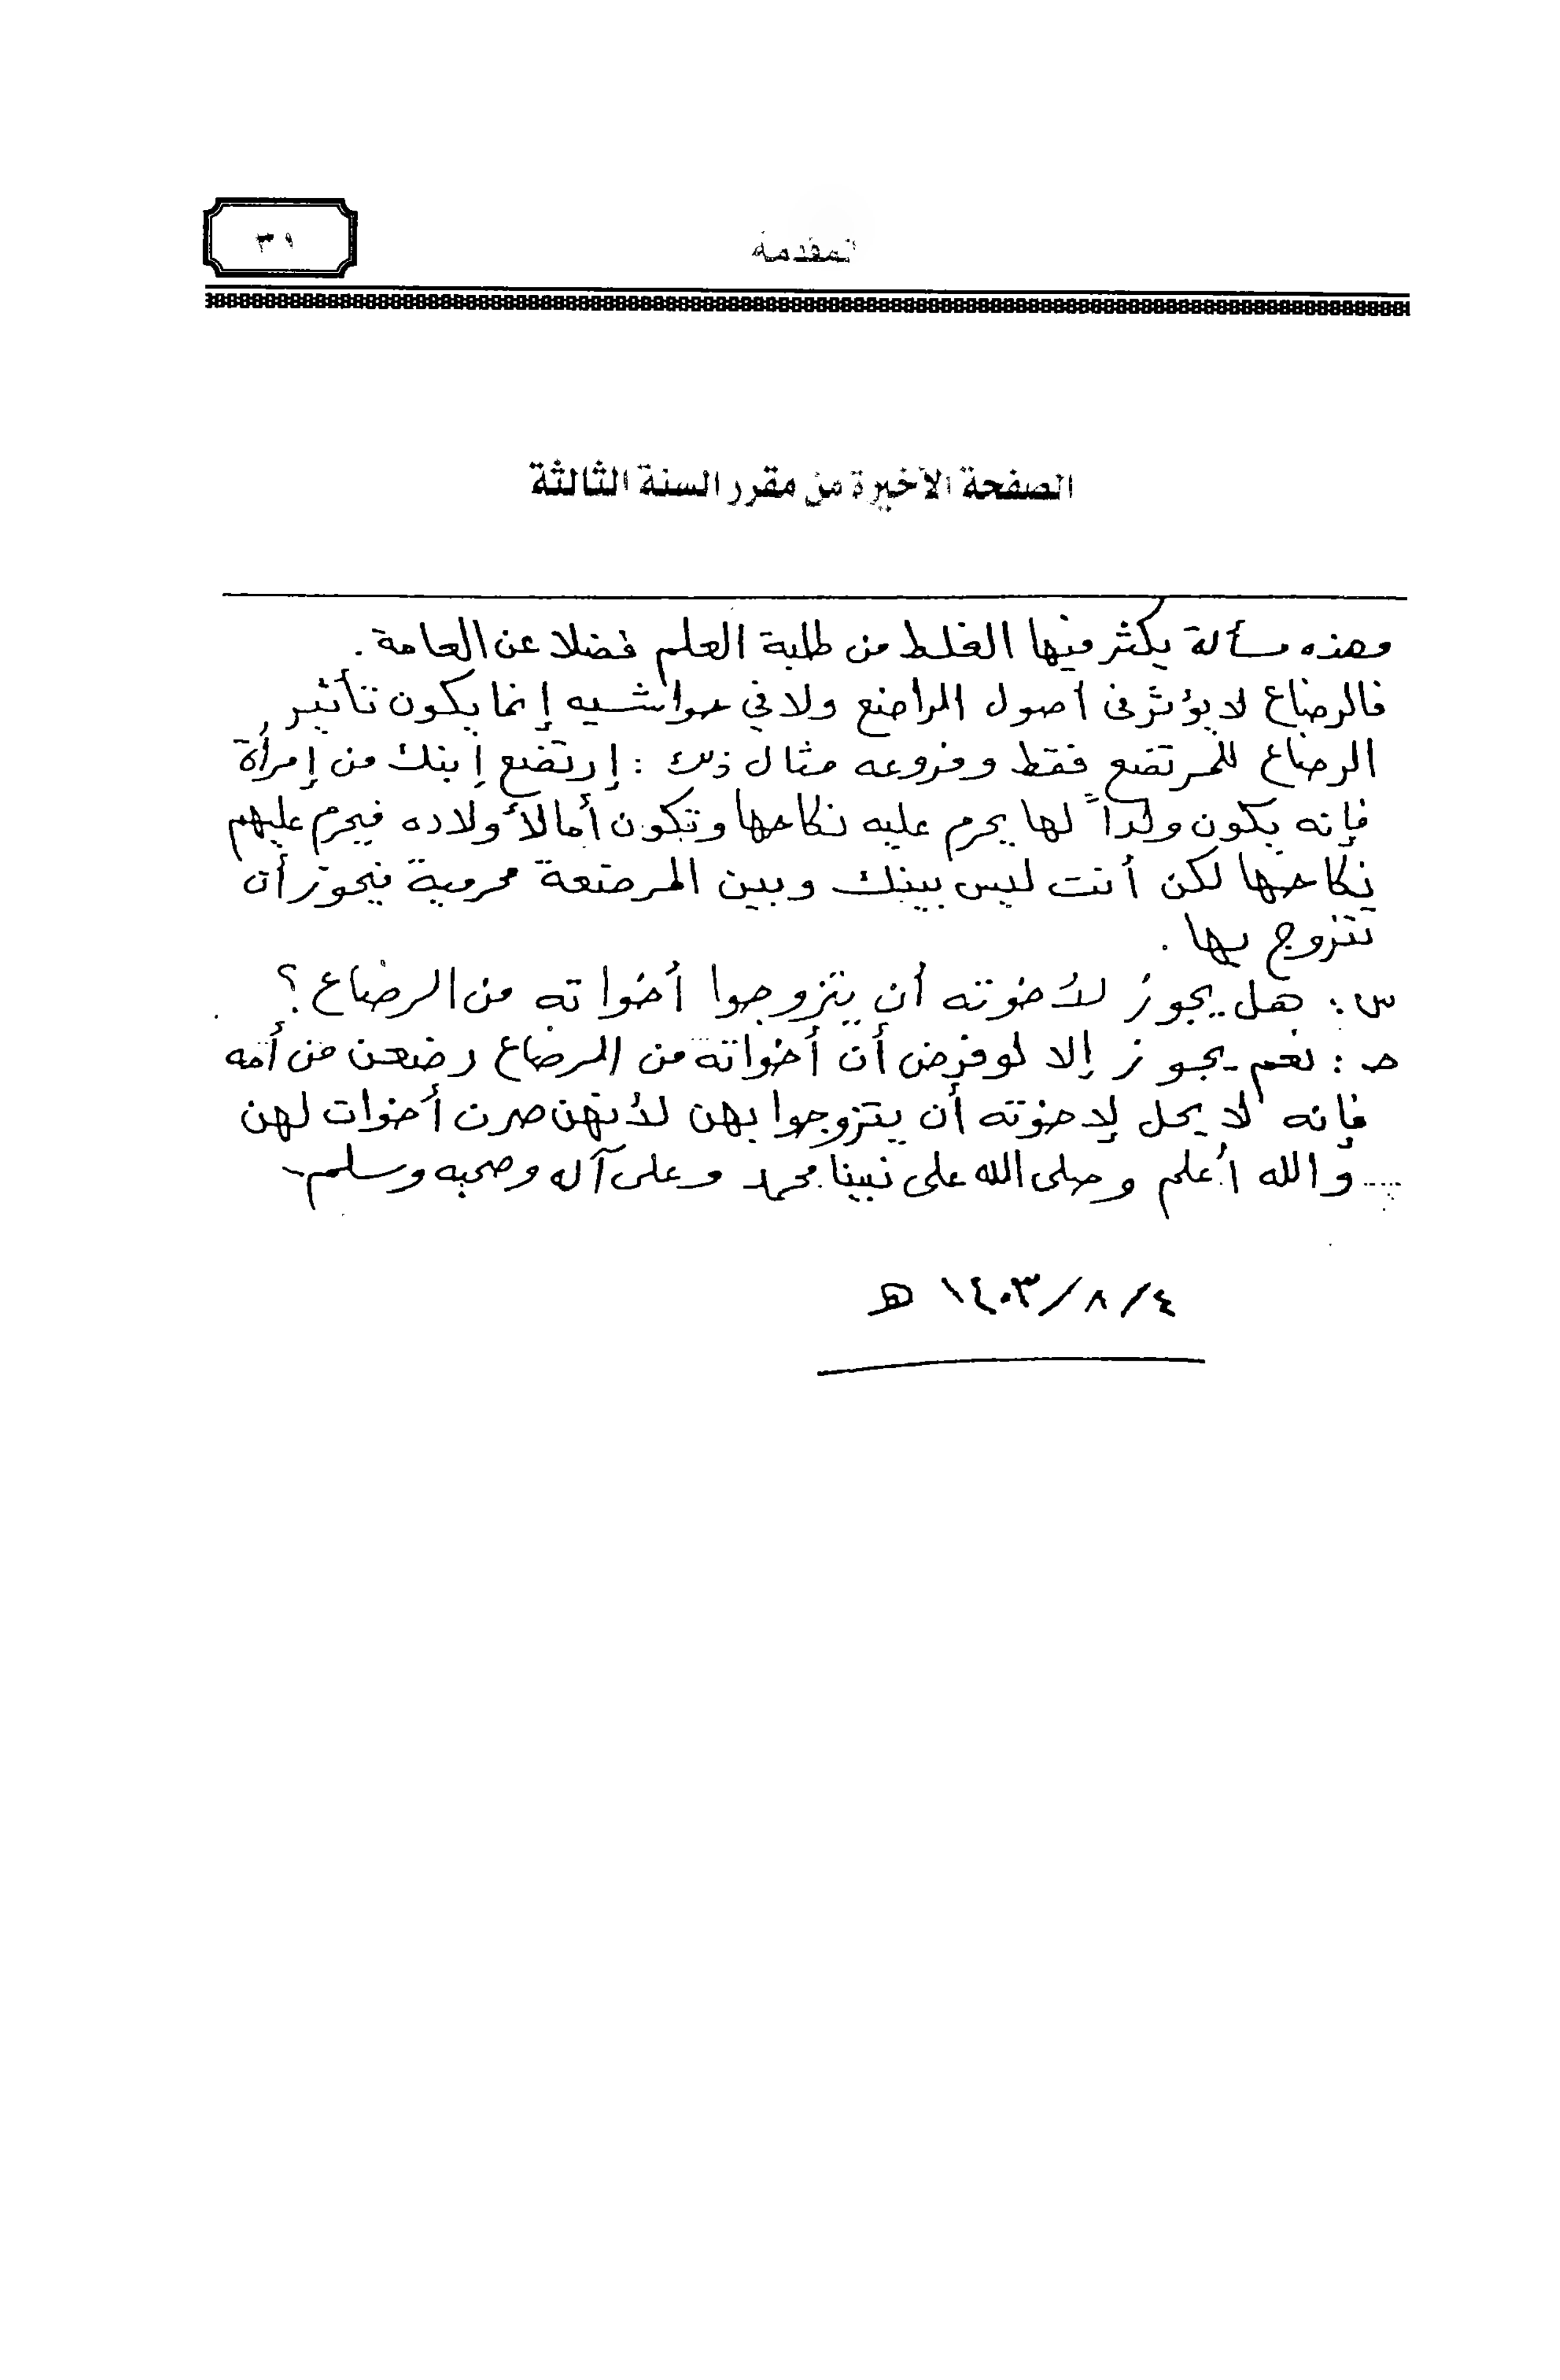 المقدمة
٣١
الصفحة الأخيرة من مقرر السنة الثالثة
وهذه مسألة يكثر فيها الغلط من طلبة العلم فضلا عن العامة .
فالرضاع لا يؤثر في أصول الراضع ولا في حواشيه إنما يكون تأثير
الرضاع للمرتضع فقط وفروعه مثال ذلك : إرتضع إبنك من إمرأة
فإنه يكون ولداً لها يحرم عليه نكاحها وتكون أما لأولاده فيحرم عليهم
نكاحها لكن أنت ليس بينك وبين المرضعة محرمية فيجوز أن
تتزوج بها .
س : هل يجوز لأخوته أن يتزوجوا أخواته من الرضاع ؟
جـ : نعم يجوز إلا لو فرض أن أخواته من الرضاع رضعن من أمه
فإنه لا يحل لإخوته أن يتزوجوا بهن لأنهن صرن أخوات لهن
والله أعلم وصلى الله على نبينا محمد وعلى آله وصحبه وسلم
٤/٨/١٤٠٣ هـ